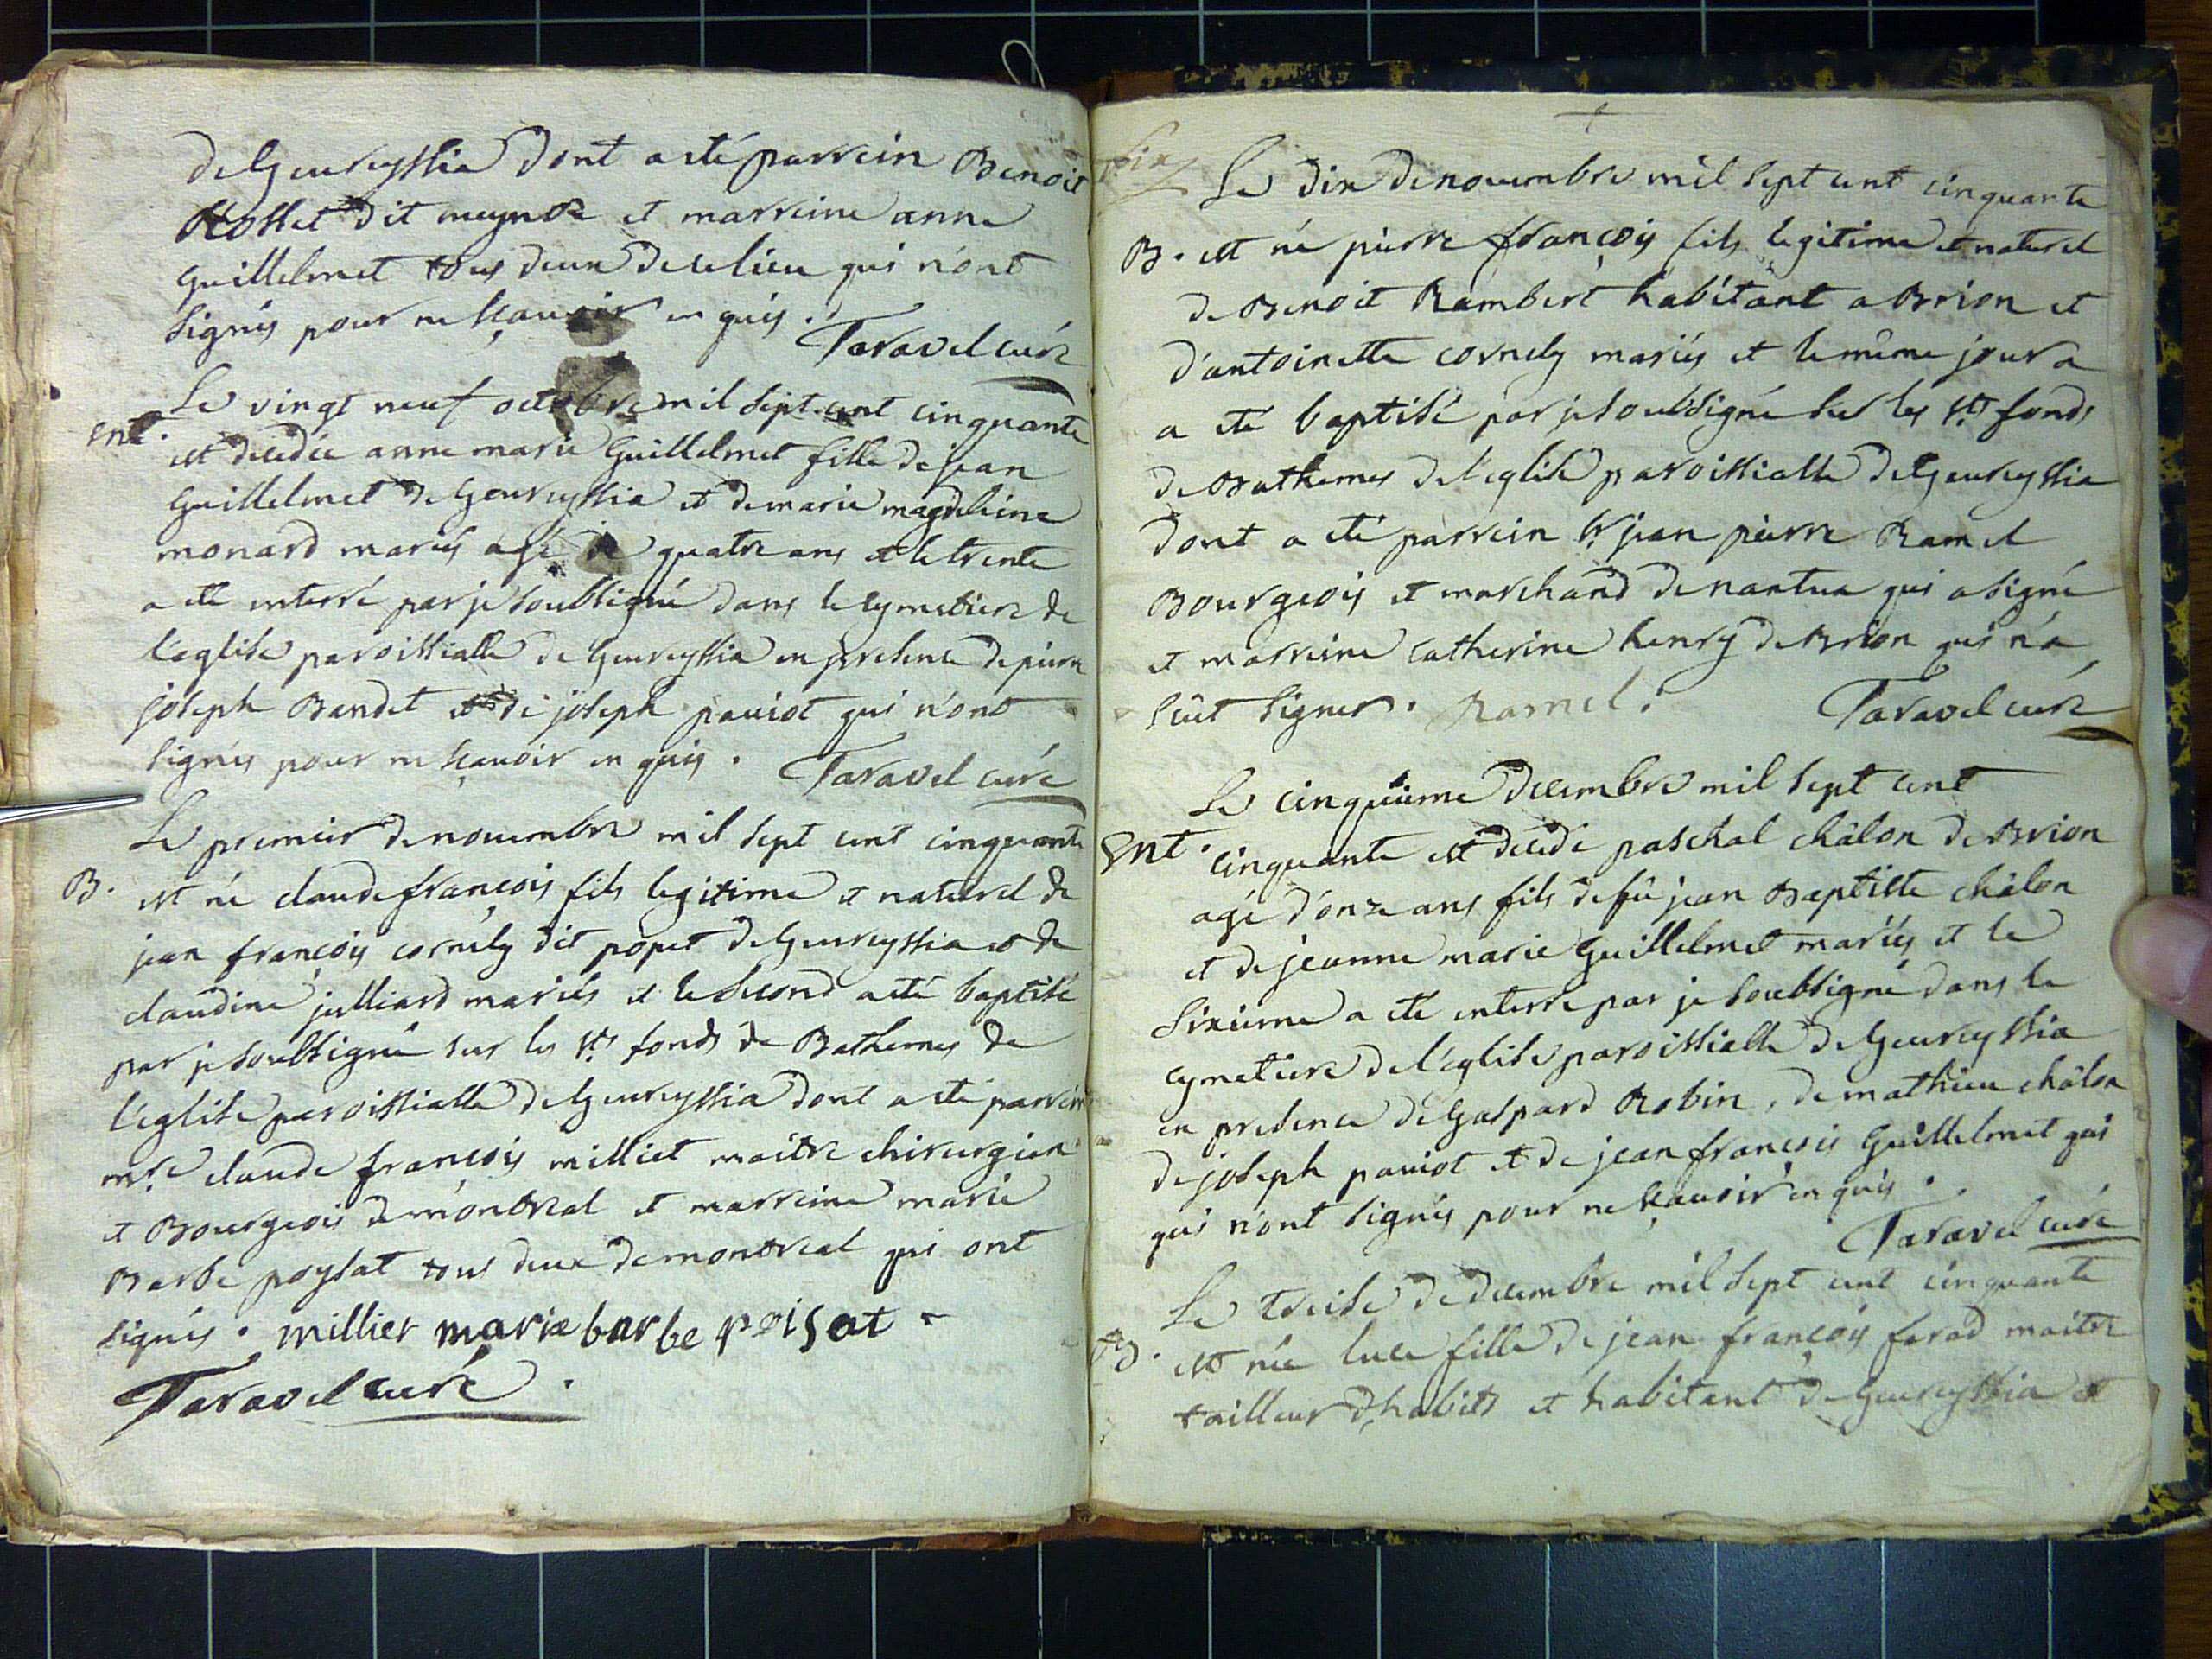 de Geureyssia dont a eté parrein Benoit
Rosset dit meynoz et marreine anne
Guillelmet tous deux de ce lieu qui n'ont
signés pour ne sçavoir en quis. Taravel curé
Le vingt neuf octobre mil sept cent cinquante
Ent. est decedée anne marie Guillelmet fille de jean
Guillelmet de Geureyssia et de marie magdeleine
monard mariés agé de quatre ans et le trente
a eté enterré par je soubsigné dans le cymetiere de
l'eglise paroissialle de Geureyssia en presence de pierre
joseph Bandet et de joseph paviot qui n'ont
signés pour ne sçavoir en quis. Taravel curé
Le premier de novembre mil sept cent cinquante
B. est né claude françois fils legitime et naturel de
jean françois cornély dit popet de Geureyssia et de
claudine julliard mariés et le second a eté baptisé
par je soubsigné sur les sts fonds de Bathemes de
l'eglise paroissialle de Geureyssia dont a eté parrein
mre claude françois milliet maitre chirurgien
et Bourgeois de montreal et marreine marie
Barbe poysat tous deux de montreal qui ont
signés. millier marie barbe poisat
Taravel curé.
dix
Le dix de novembre mil sept cent cinquante
B. est né pierre françois fils legitime et naturel
de Benoit Rambert habitant a Brion et
d'antoinette cornely mariés et le même jour a
a eté baptisé par je soubsigné sur les sts fonds
de Bathemes de l'eglise paroissialle de Geureyssia
dont a eté parrein sr jean pierre Ramel
Bourgeois et marchand de nantua qui a signé
et marreine catherine henry de Brion qui n'a
sçut signer. Ramel. Taravel curé
Le cinquieme decembre mil sept cent
Ent. cinquante est decedé paschal châlon de Brion
agé d'onze ans fils de fû jean Baptiste châlon
et de jeanne marie Guillelmet mariés et le
sixieme a eté enterré par je soubsigné dans le
cymetiere de l'eglise paroissialle de Geureyssia
en presence de Gaspard Robin, de mathieu châlon
de joseph paviot et de jean françois Guillelmet qui
qui n'ont signés pour ne sçavoir en quis.
Taravel curé
Le treise de decembre mil sept cent cinquante
B. est née luce fille de jean françois farad maitre
tailleur d'habits et habitant de Geureyssia et